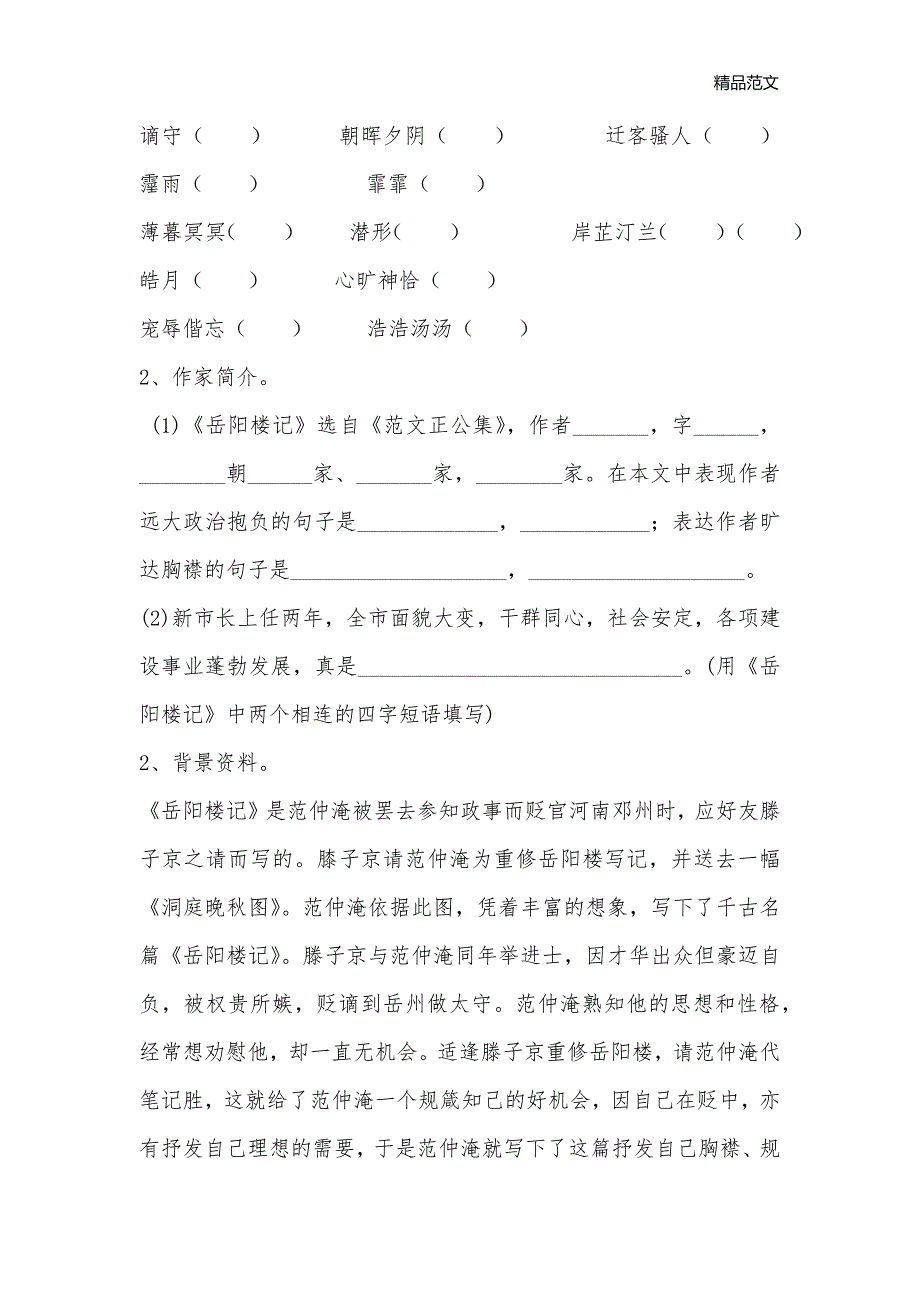 精品范文
谪守（　　） 朝晖夕阴（　　） 迁客骚人（　　）
霪雨（　　） 霏霏（　　）
薄暮冥冥(　　) 潜形(　　) 岸芷汀兰(　　)(　　)
皓月（　　） 心旷神恰（　　）
宠辱偕忘（　　） 浩浩汤汤（　　）
2、作家简介。
(1)《岳阳楼记》选自《范文正公集》，作者_______，字______，
________朝______家、_______家，________家。在本文中表现作者
远大政治抱负的句子是_____________，____________；表达作者旷
达胸襟的句子是____________________，____________________。
(2)新市长上任两年，全市面貌大变，干群同心，社会安定，各项建
设事业蓬勃发展，真是______________________________。(用《岳
阳楼记》中两个相连的四字短语填写)
2、背景资料。
《岳阳楼记》是范仲淹被罢去参知政事而贬官河南邓州时，应好友滕
子京之请而写的。滕子京请范仲淹为重修岳阳楼写记，并送去一幅
《洞庭晚秋图》。范仲淹依据此图，凭着丰富的想象，写下了千古名
篇《岳阳楼记》。滕子京与范仲淹同年举进士，因才华出众但豪迈自
负，被权贵所嫉，贬谪到岳州做太守。范仲淹熟知他的思想和性格，
经常想劝慰他，却一直无机会。适逢滕子京重修岳阳楼，请范仲淹代
笔记胜，这就给了范仲淹一个规箴知己的好机会，因自己在贬中，亦
有抒发自己理想的需要，于是范仲淹就写下了这篇抒发自己胸襟、规